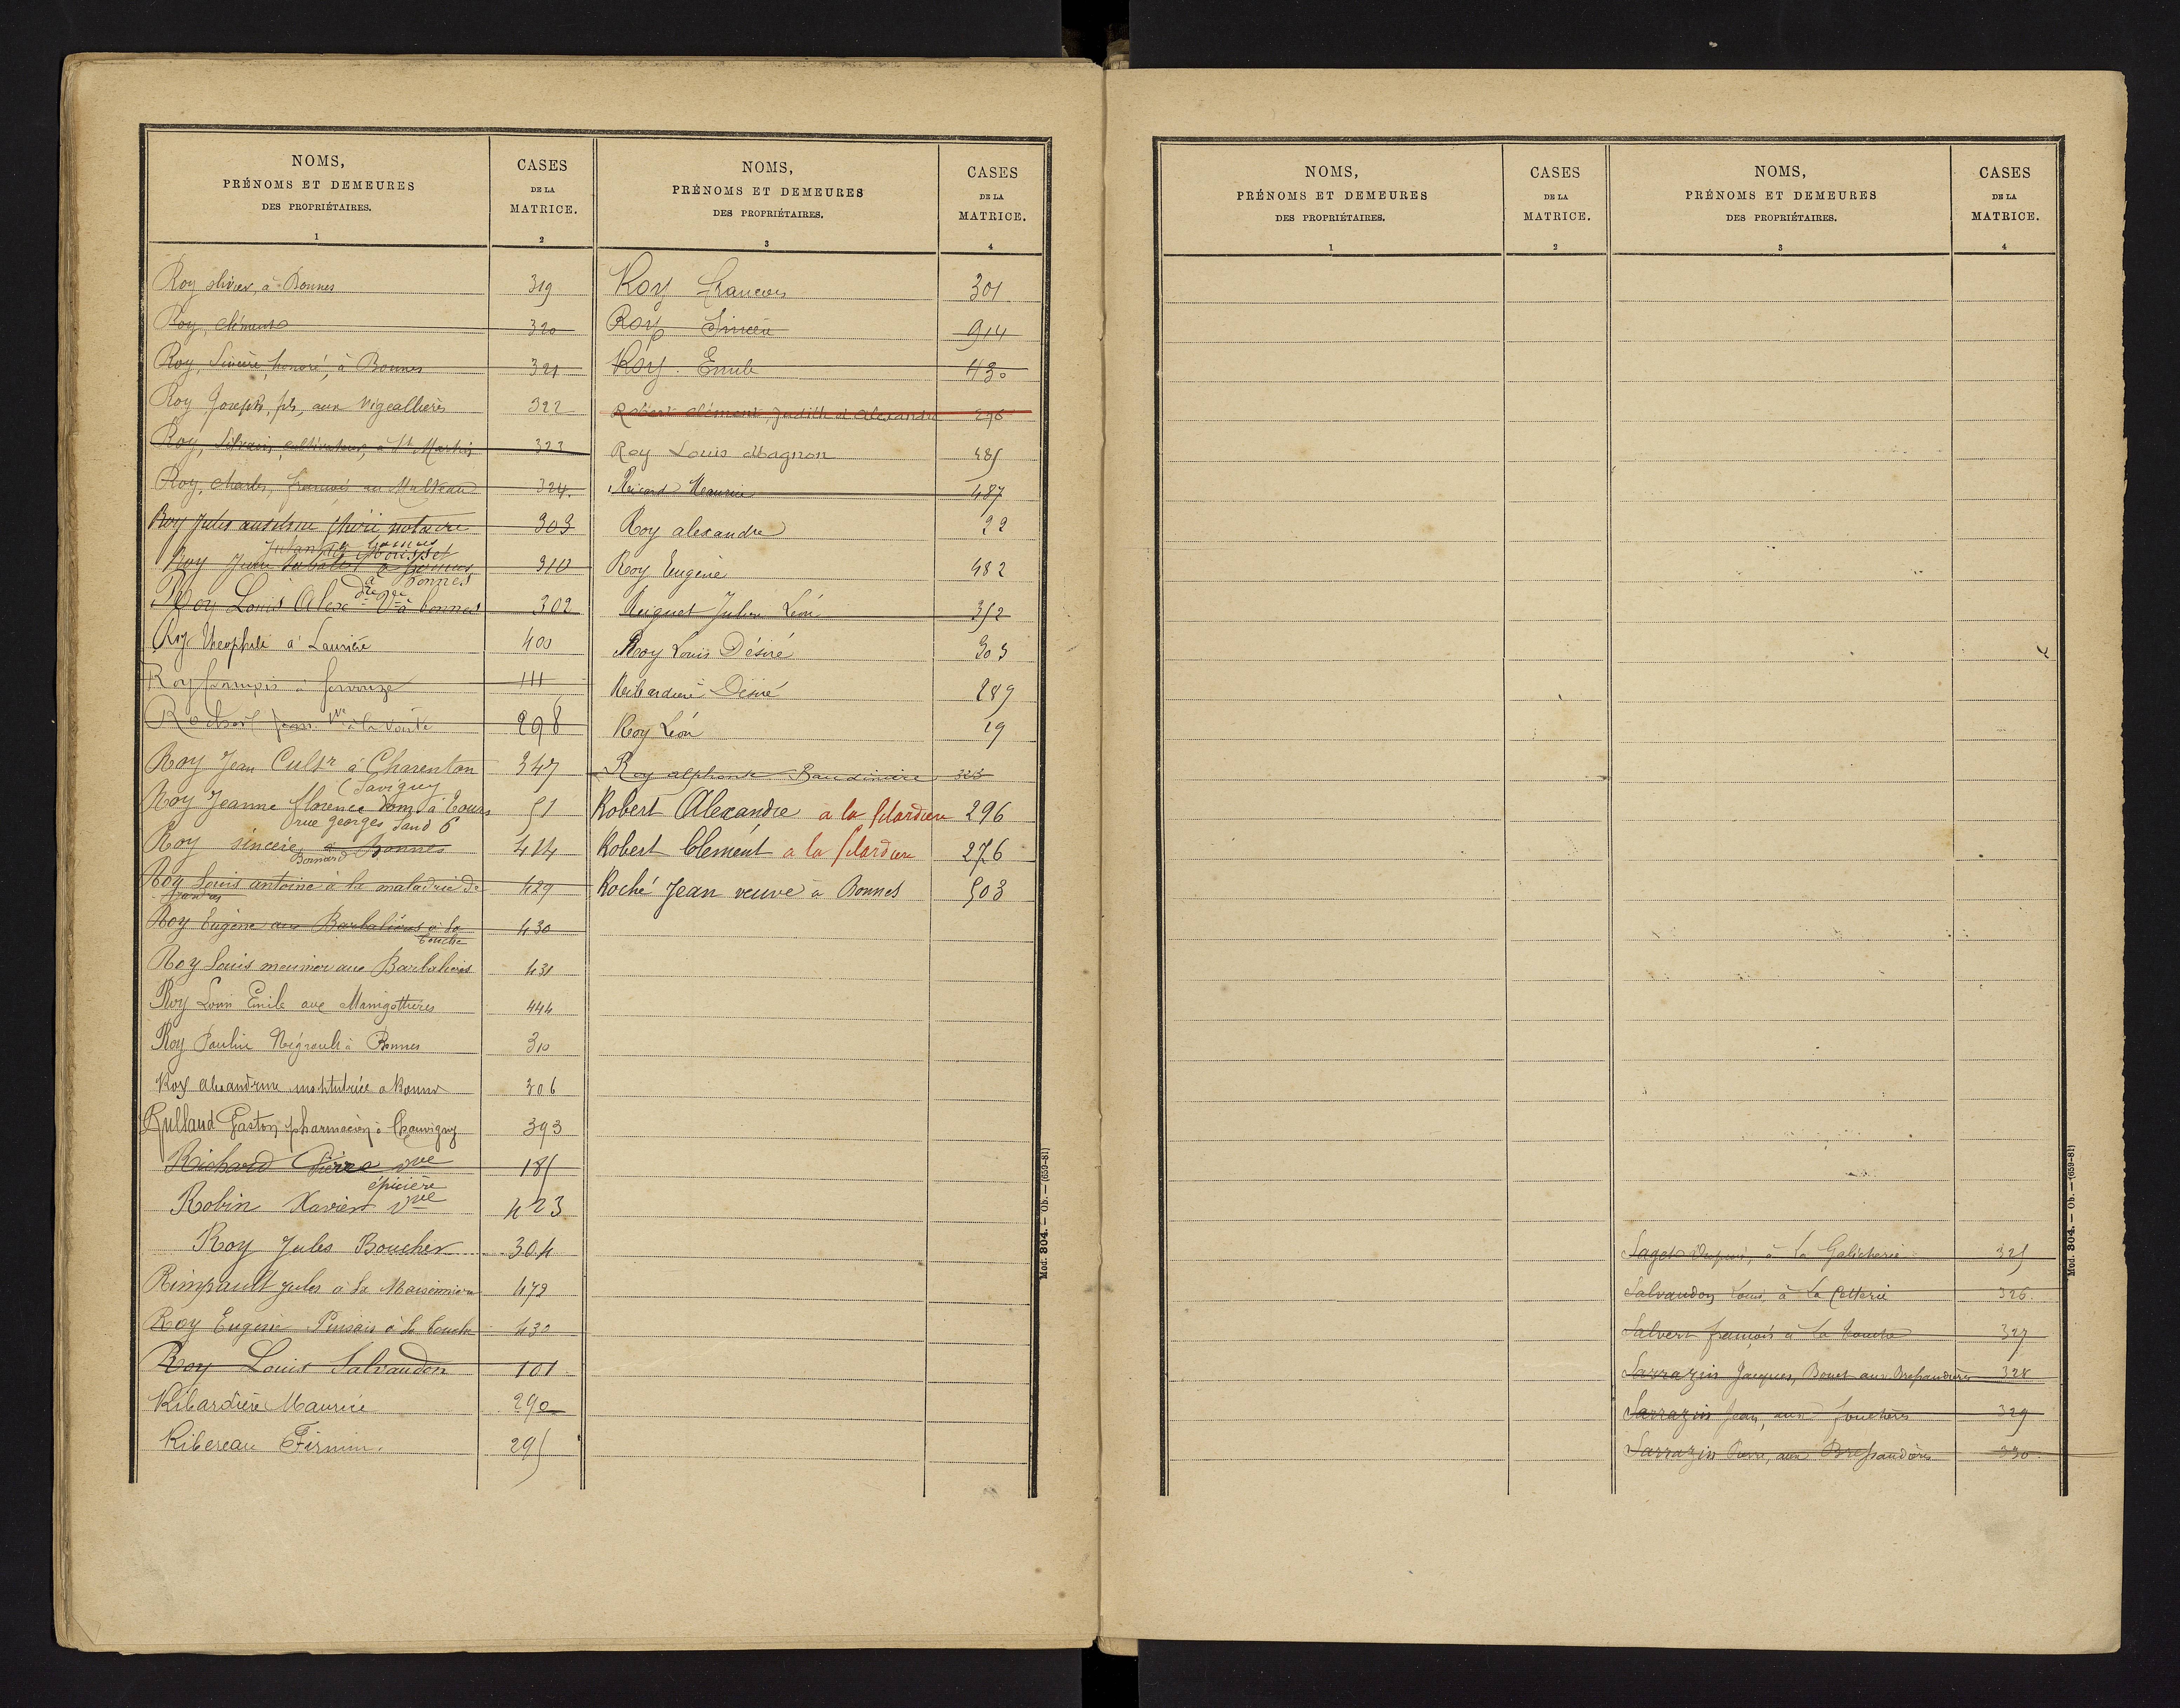 NOMS,
PRÉNOMS ET DEMEURES
DES PROPRIÉTAIRES.
1
CASES
DE LA
MATRICE.
2
Roy olivier, à Bonnes 319
Roy, clément 320
Roy, Sincère, honoré, à Bonnes 321
Roy Joseph, fils, aux Vigeallières 322
Roy, Silvain, cultivateur, à St Martin 323
Roy, Charles, françois au Malteau 324.
Roy Jules anselme notaire 303
Roy Jean 310
à bonnes
Roy Louis Alexdre Vve à bonnes 302
Roy théophile à Laurière 400
Roy françois à 111
Jean Vve à la 298
Roy Jean Cultr à Charenton 347
(Savigny
Roy Jeanne florence dom à Tours 51
rue georges Sand 6
Roy sincère, à Bonnes 414
Bernard
Roy Louis antoine à la maladrie de 429
Roy Eugène aux Barbalières à la 430
touche
Roy Louis meunier aux Barbalières 431
Roy Louis Emile aux Manigottières 444
Roy Paulin Négrault à Bonnes 310
Roy alexandrine institutrice a Bonnes 306
Rulland Gaston pharmacien à Chauvigny 393
Richard Pierre vve 185
épicière
Robin Xavier vve 423
Roy Jules Boucher 304
Rimpault Jules à la Maisonnière 479
Roy Eugène Pinsais à la touche 430
Roy Louis Salvaudon 101
Ribardière Maurice 290
Ribereau Firmin. 295
NOMS,
PRÉNOMS ET DEMEURES
DES PROPRIÉTAIRES.
3
CASES
DE LA
MATRICE.
4
Roy francois 301
Roy Sincère 914
Roy. Emile 430
Robert clément, Judith et alexandre 296
Roy Louis Magnon 485
Ricard Maurice 487
Roy alexandre 22
Roy Eugène 482
Julien Léon 352
Roy Louis Désiré 305
Ribardière Désiré 289
Roy Léon 19
Roy alphonse Baudinière 323
Robert Alexandre a la filardiere 296
Robert Clement a la filardiere 276
Roché Jean veuve à Bonnes 503
Mod. 804. — Ob. — (659-81)
NOMS,
PRÉNOMS ET DEMEURES
DES PROPRIÉTAIRES.
1
CASES
DE LA
MATRICE.
2
NOMS,
PRÉNOMS ET DEMEURES
DES PROPRIÉTAIRES.
3
CASES
DE LA
MATRICE.
4
Sagot à la Galicherie 325
Salvaudon Louis, à La 326.
Salvert françois à la touche 327
Sarrazin Jacques, Bonet aux Bressaudières 328
Sarrazin Jean, aux fouchères 329
Sarrazin Pierre, aux Bressaudières 330.
Mod. 804. — Ob. — (659-81)